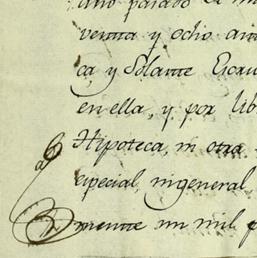 año pasado de m
veinta y ocho an
ca y Solante Escau
en ella, y por lib
Hipoteca, ni otra
especial, nigeneral,
mente un mil p